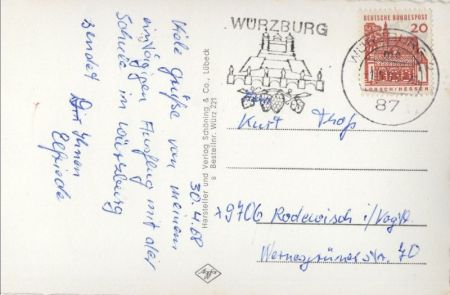 30.4.68
Viele Grüße von meinem
eintägigen Ausflug mit der
Schule in Würzburg
sendet Ihnen
Elfriede
Hersteller und Verlag Schöning & Co., Lübeck
s Bestellnr. Würz 221
Agfa
WÜRZBURG
87
DEUTSCHE BUNDESPOST
20
LORSCH/HESSEN
Kurt
9706 Rodewisch i/Vogtl.
Wernesgrüner Str. 70